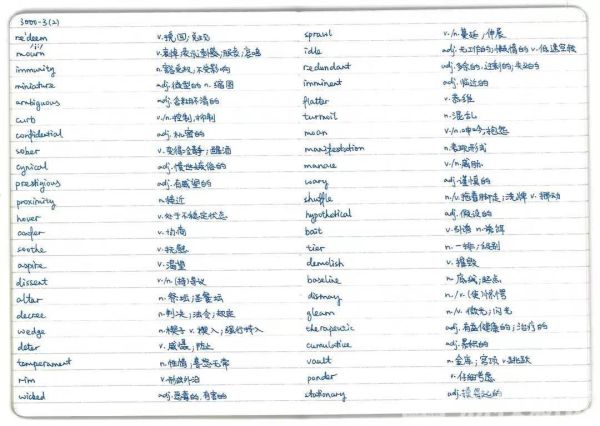 3000-3(2)
re'deem v.挽回;兑现
/ɔː/
mourn v.哀悼;表示遗憾;服丧;哀鸣
immunity n.豁免权;不受影响
miniature adj.微型的 n.缩图
ambiguous adj.含糊不清的
curb v./n.控制,抑制
confidential adj.机密的
sober v.变得冷静;醒酒
cynical adj.愤世嫉俗的
prestigious adj.有威望的
proximity n.接近
hover v.处于不稳定状态
confer v.协商
soothe v.抚慰
aspire v.渴望
dissent v./n.(持)异议
altar n.祭坛;圣餐坛
decree n.判决;法令;规定
wedge n.楔子 v.楔入;强行挤入
deter v.威慑;防止
temperament n.性情;喜怒无常
rim v.形成外沿
wicked adj.恶毒的.有害的
sprawl v./n.蔓延;伸展
idle adj.无工作的;懒惰的 v.低速空转
redundant adj.多余的.过剩的;失业的
imminent adj.临近的
flatter v.恭维
turmoil n.混乱
moan v./n.呻吟;抱怨
manifestation n.表现形式
menace v./n.威胁
wary adj.谨慎的
shuffle n./v.拖着脚走;洗牌 v.挪动
hypothetical adj.假设的
bait v.引诱 n.诱饵
tier n.一排;级别
demolish v.摧毁
baseline n.底线;起点
dismay n./v.(使)惊愕
gleam n./v.微光;闪光
therapeutic adj.有益健康的;治疗的
cumulative adj.累积的
vault n.金库;穹顶 v.跳跃
ponder v.仔细考虑
stationary adj.